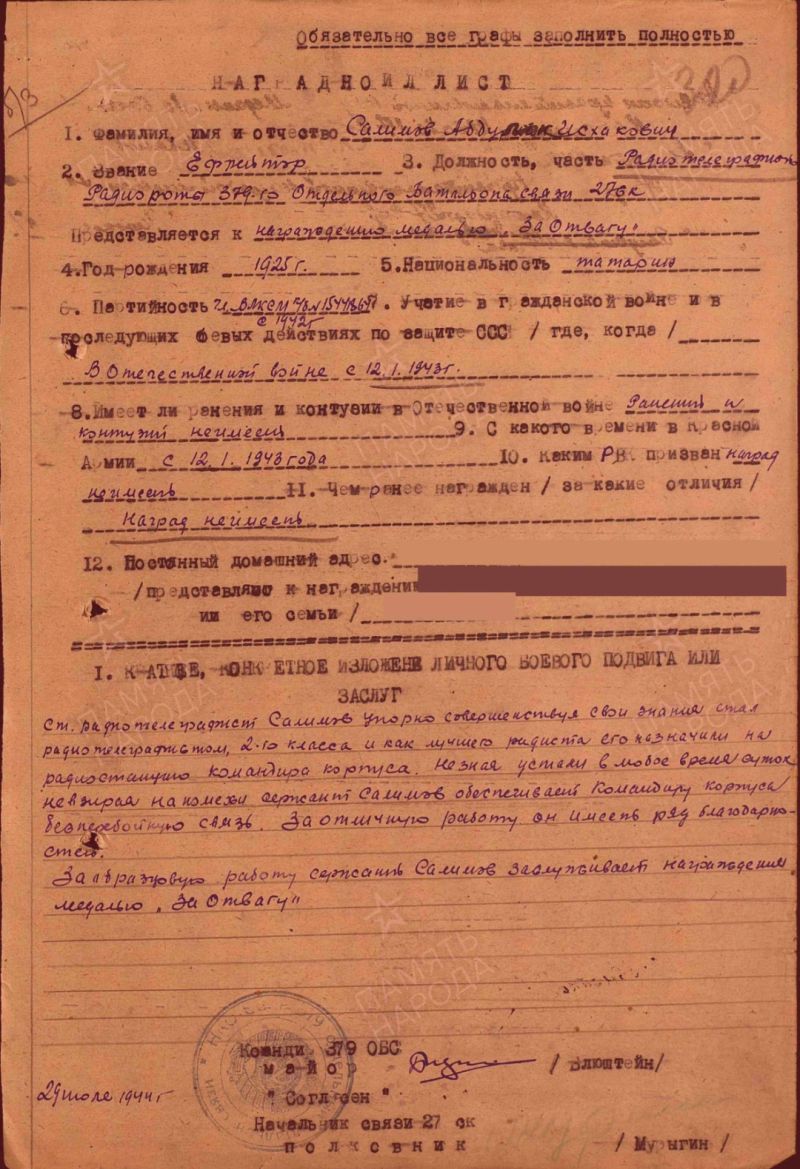 Обязательно все графы заполнить полностью
НАГРАДНОЙ ЛИСТ
1. Фамилия, имя и отчество Салимов Исхакович
2. Звание Ефрейтор 3. Должность, часть Радиотелеграфист
Радиороты 379-го Отдельного Батальона связи 27 ск
Представляется к награждению медалью „За Отвагу"
4. Год рождения 1925 г. 5. Национальность татарин
6. Партийность Чл. ВЛКСМ Участие в гражданской войне и в
с 1942г
последующих боевых действиях по защите СССР / где, когда /
В Отечественной войне с 12.1.1943г.
8. Имеет ли ранения и контузии в Отечественной войне Ранений и
контузий неимеет 9. С какого времени в Красной
Армии с 12.1.1943 года 10. Каким РВК призван наград
неимеет 11. Чем ранее награжден / за какие отличия /
Наград неимееть
12. Постоянный домашний адрес.
/представляю к награждению
ии его семьи /
I. КРАТКОЕ, КОНКРЕТНОЕ ИЗЛОЖЕНЕ ЛИЧНОГО БОЕВОГО ПОДВИГА ИЛИ
ЗАСЛУГ
Ст. радиотелеграфист Салимов упорно совершенствуя свои знания стал
радиотелеграфистом, 2-го класса и как лучшего радиста его назначили на
радиостанцию командира корпуса. Незная устали в любое время суток
невзирая на помехи сержант Салимов обеспечивает Командиру корпуса
безперебойную связь. За отличную работу он имееть ряд благодарно-
стей.
За образцовую работу сержант Салимов заслуживает награждения
медалью „За Отвагу"
Команди. 379 ОБС
майор / Блюштейн/
29 июле 1944г
" Согласен "
Начальник связи 27 ск
полковник / Мурыгин /
ПАМЯТЬ
НАРОДА